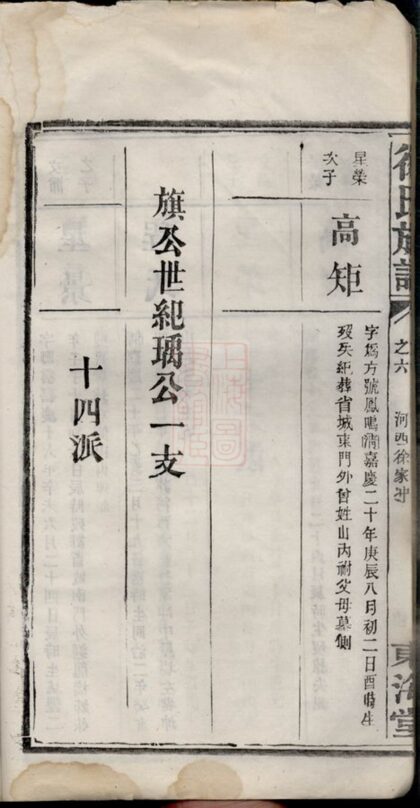 徐氏族譜
之六
河西徐家冲
東海堂
星榮
次子
高矩
字爲方號鳳鳴清嘉慶二十年庚辰八月初二日酉時生
歿失紀葬省城東門外曾姓山內祔父母墓側
旗公世紀瑀公一支
十四派